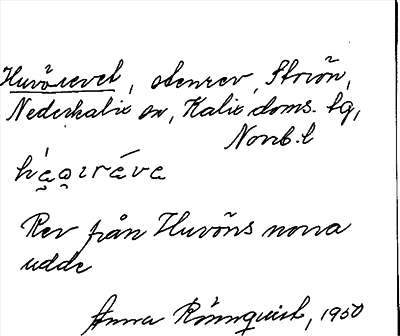 Huvörevet, stenrev, Storön,
Nederkalix sn, Kalix doms. tg,
Norrb. l
Rev från Huvöns norra
udde
Anna Rönnquist, 1950